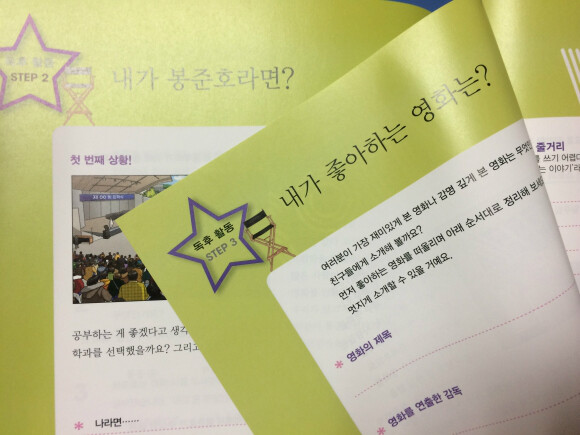 독후 활동
STEP 2
내가 봉준호라면?
첫 번째 상황!
공부하는 게 좋겠다고 생각
학과를 선택했을까요? 그리고
* 나라면……
독후 활동
STEP 3
내가 좋아하는 영화는?
여러분이 가장 재미있게 본 영화나 감명 깊게 본 영화는 무엇
친구들에게 소개해 볼까요?
먼저 좋아하는 영화를 떠올리며 아래 순서대로 정리해 보세
멋지게 소개할 수 있을 거예요.
* 영화의 제목
* 영화를 연출한 감독
줄거리
를 쓰기 어렵다
는 이야기'라